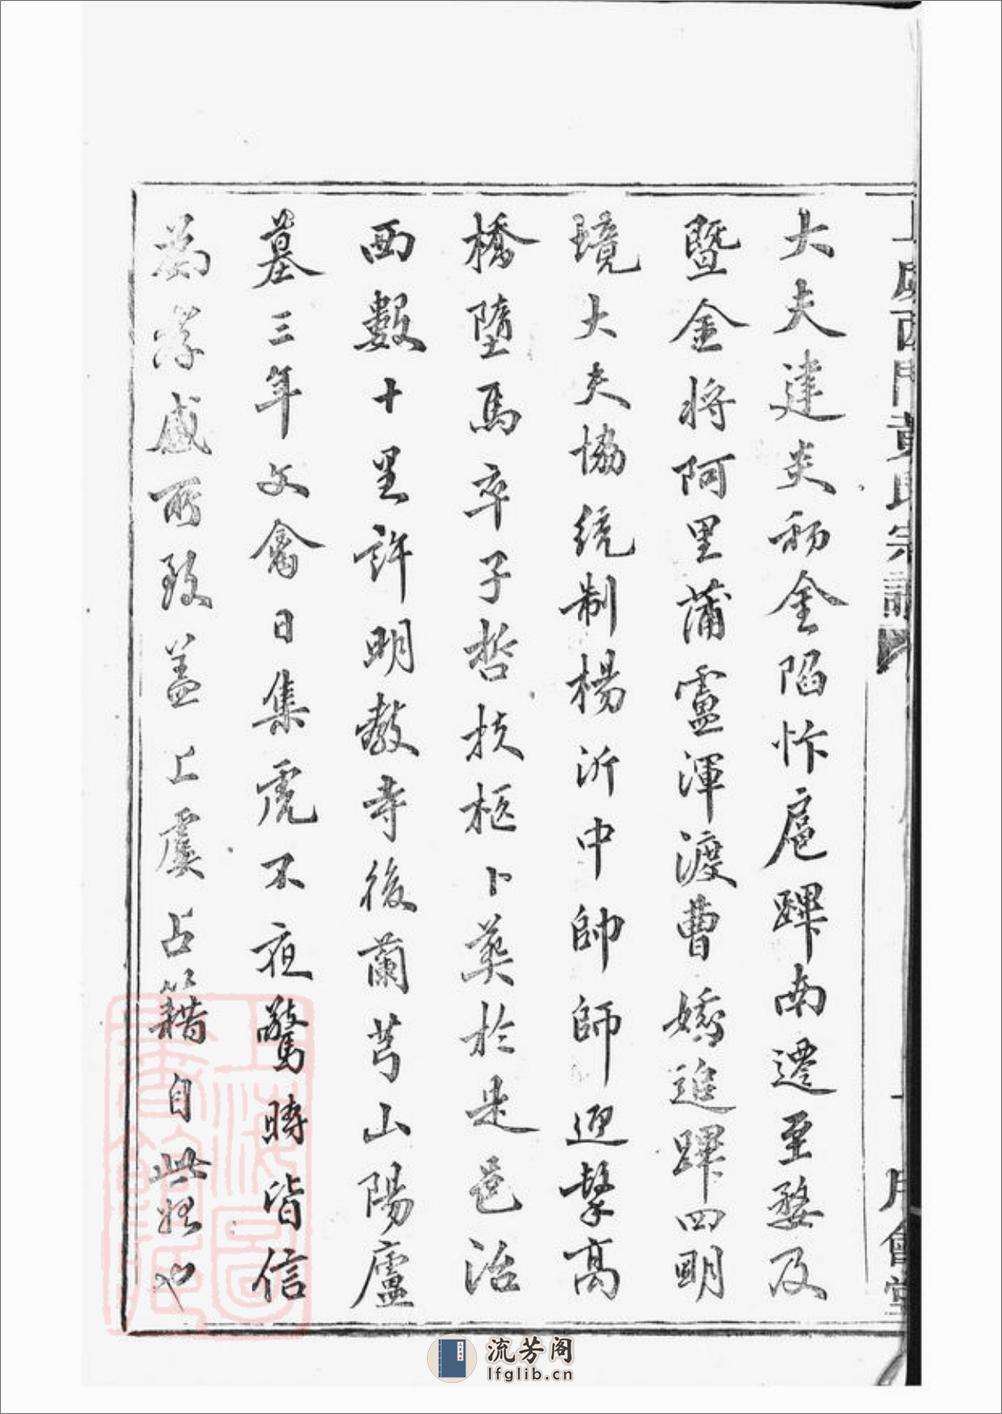 大夫建炎初金陷忭扈蹕南遷至婺及
暨金將阿里蒲盧渾渡曹娥追蹕四明
境大夫協統制楊沂中帥師迎擊高
橋墮馬卒子哲扶柩卜葬於是邑治
西數十里許明教寺後蘭芎山陽廬
墓三年文禽日集虎不夜驚時皆信
為孝感所致蓋上虞占籍自此始也
上虞西門黃氏宗譜
會堂
上海圖書館藏
流芳阁
lfglib.cn